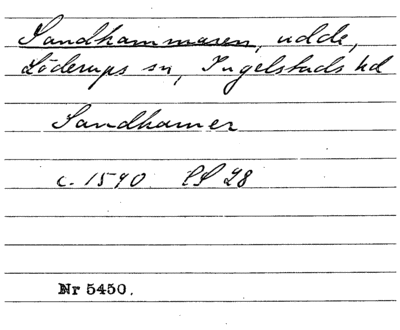 Sandhammaren, udde,
Löderups sn, Ingelstads hd
Sandhamer
c. 1590 LS 28
Nr 5450.